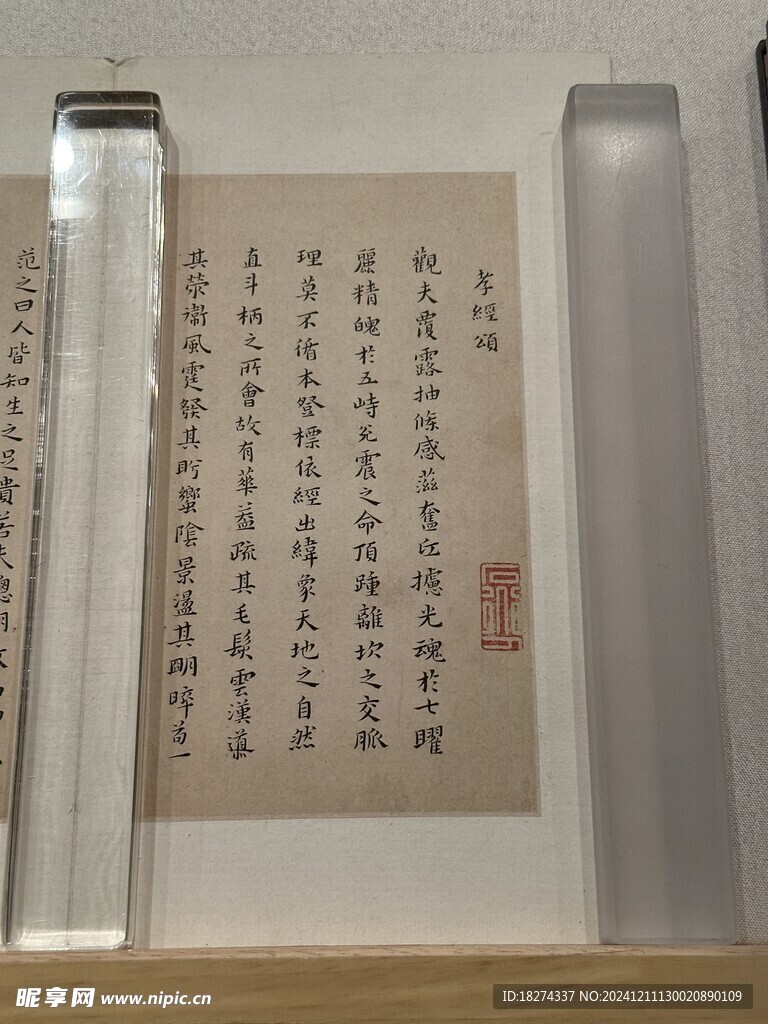 孝經頌
觀夫覆露抽條感滋奮丘攄光魂於七曜
麗精魄於五峙兌震之命頂踵離坎之交脈
理莫不循本登標依經出緯象天地之自然
直斗柄之所會故有華蓋疏其毛髮雲漢
其榮衞風霆發其盻蠁陰景盪其明晬苟一
范之曰人皆知生之足貴若夫聰明
昵享网 www.nipic.cn
ID:18274337 NO:20241211130020890109